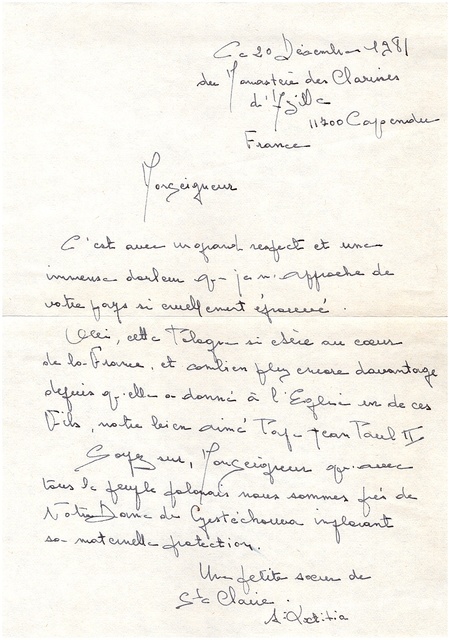 Ce 20 Décembre 1981
du Monastère des Clarisses
d'Azille
11700 Capendu
France
Monseigneur
C'est avec un grand respect et une
immense douleur que je m'approche de
votre pays si cruellement éprouvé.
Oui, cette Pologne si chère au cœur
de la France, et combien plus encore davantage
depuis qu'elle a donné à l'Eglise un de ces
Fils, notre bien aimé Pape Jean Paul II
Soyez sur, Monseigneur qu'avec
tous le peuple polonais nous sommes près de
Notre Dame de Czestéchowa implorant
sa maternelle protection.
Une petite sœur de
Ste Claire.
Sr Laetitia